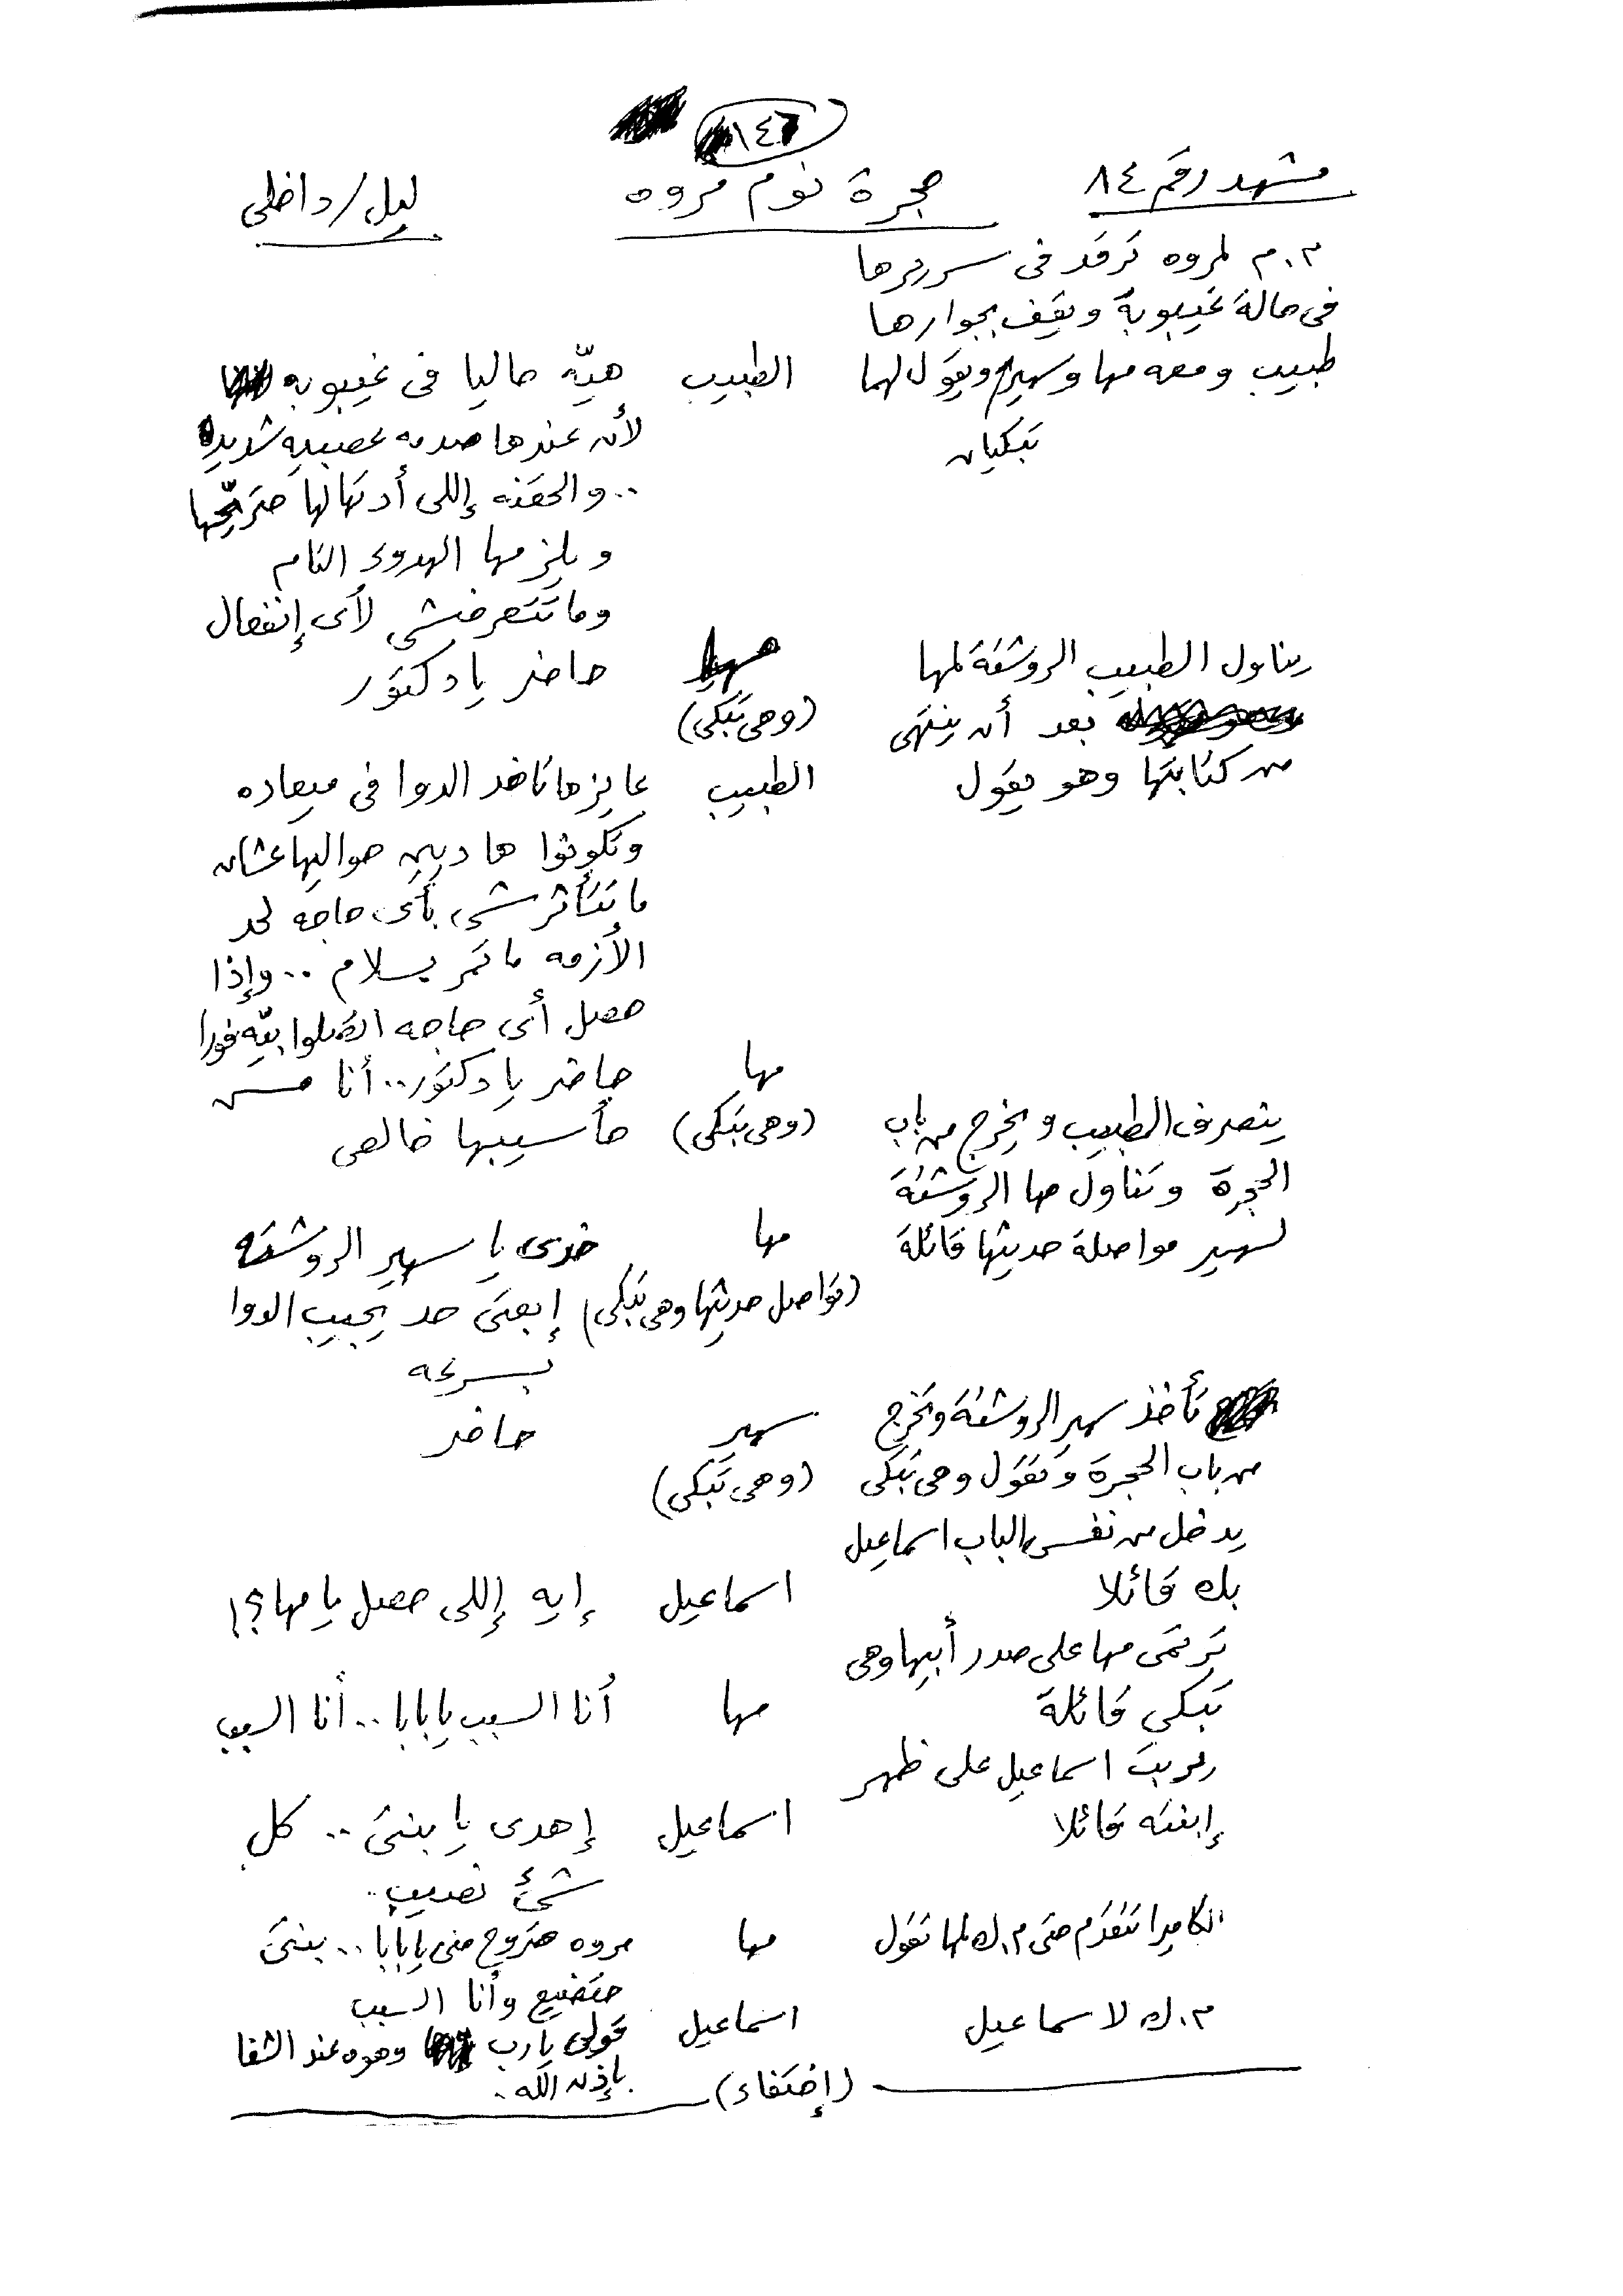 ١٤٦
مشهد رقم ٨٤ حجرة نوم مروه ليل/داخلى
م.م لمروه ترقد فى سريرها
فى حالة غيبوبة ويقف بجوارها
طبيب ومعه مها وسهير ويقول لهما الطبيب هيّه حاليا فى غيبوبه
تبكيان لأن عندها صدمه عصبيه شديده
..والحقنه إللى أدتهالها حتريّحها
ويلزمها الهدوء التام
وماتتعرضش لأى إنفعال
يناول الطبيب الروشتة لمها مها حاضر يا دكتور
بعد أن ينتهى (وهى تبكى)
من كتابتها وهو يقول الطبيب عايزها تاخد الدوا فى ميعاده
وتكونوا هاديين حواليها عشان
ماتتأثرش بأى حاجه لحد
الأزمه ماتمر بسلام .. وإذا
حصل أى حاجه اتصلوا بيّه فورا
مها حاضر يا دكتور.. أنا مش
ينصرف الطبيب ويخرج من باب (وهى تبكى) حأسيبها خالص
الحجرة وتناول مها الروشتة
لسهير مواصلة حديثها قائلة مها خدى يا سهير الروشته
(تواصل حديثها وهى تبكى) إبعتى حد يجيب الدوا
بسرعه
تأخذ سهير الروشتة وتخرج سهير حاضر
من باب الحجرة وتقول وهى تبكى (وهى تبكى)
يدخل من نفس الباب اسماعيل
بك قائلا اسماعيل إيه إللى حصل يا مها؟!
ترتمى مها على صدر أبيها وهى
تبكي قائلة مها أنا السبب يا بابا.. أنا السبب
يربت اسماعيل على ظهر
إبنته قائلا اسماعيل إهدى يا بنتى .. كل
شئ نصيب..
الكاميرا تتقدم حتى م.ك لمها تقول مها مروه حتروح منى يا بابا.. بنتى
حتضيع وأنا السبب
م.ك لاسماعيل اسماعيل قولى يارب وهوه عنده الشفا
بإذن الله.
(إختفاء)